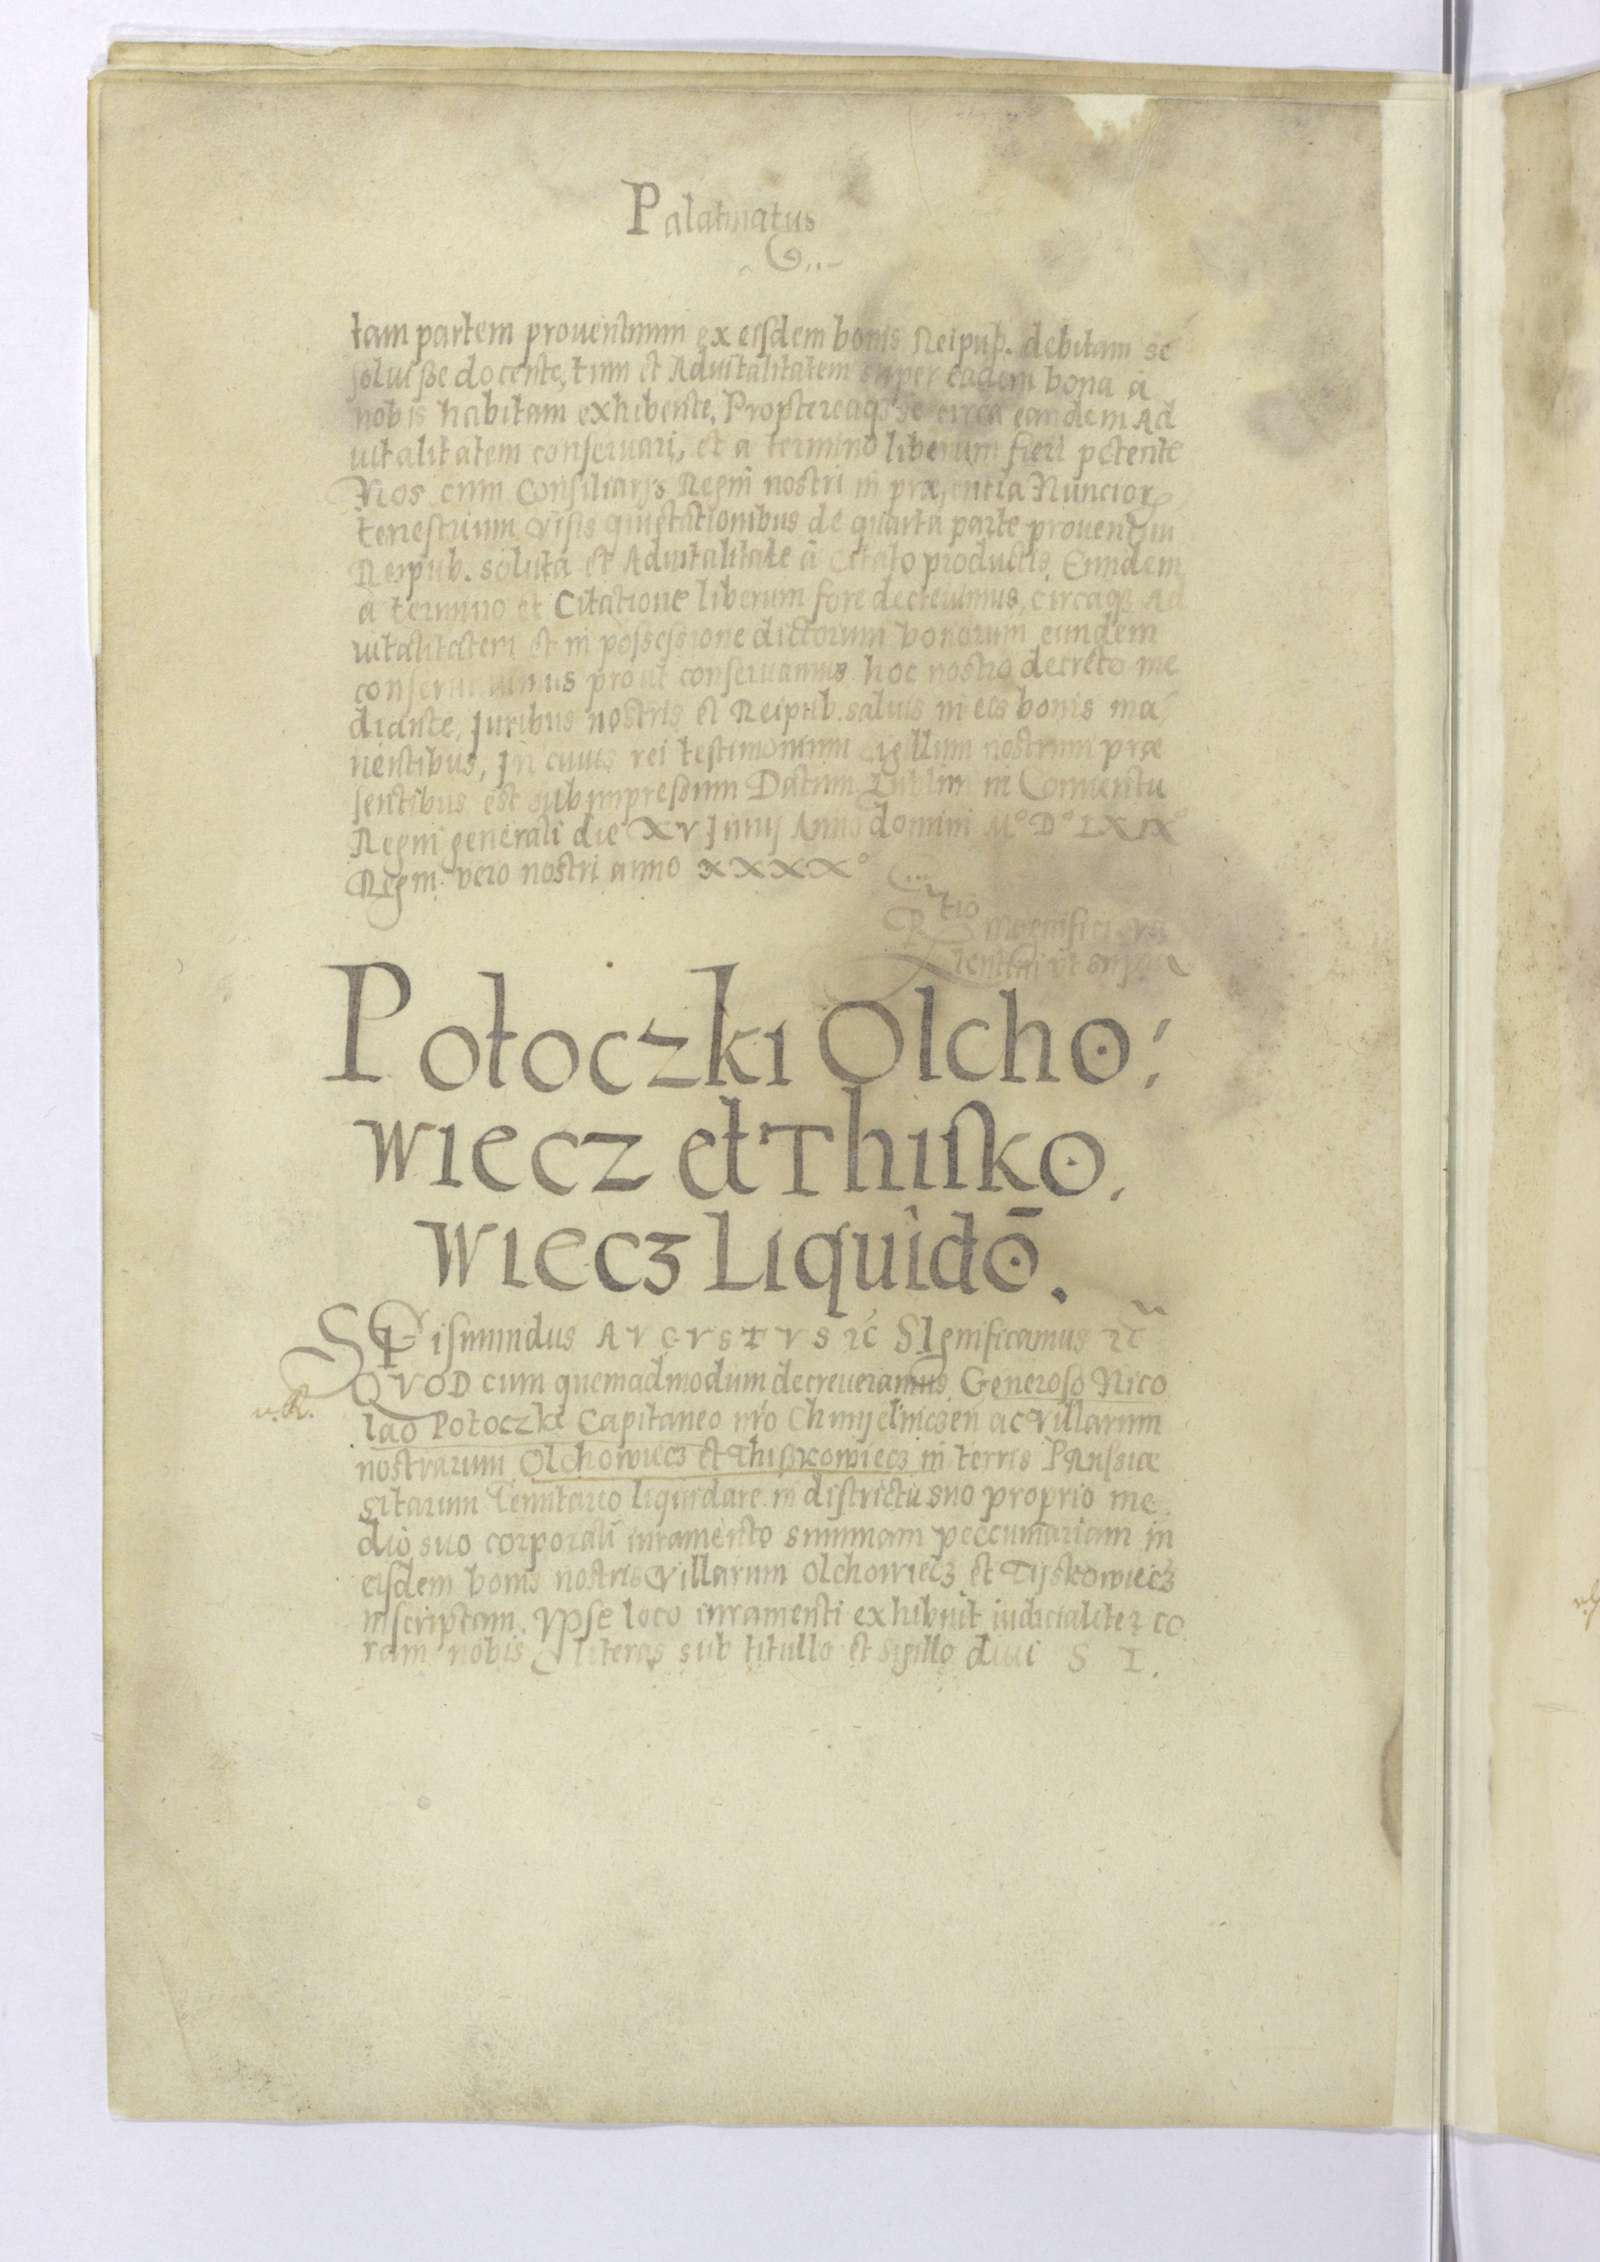 Palatinatus
tam partem prouentuum ex eisdem bonis Reipub. debitam se
soluisse docente, tum et Aduitalitatem super eadem bona a
nobis habitam exhibente, Propstereaqз se circa eandem Ad
uitalitatem conseruari, et a termino liberum fieri petente
Nos cum Consiliarys Regni nostri in præsentia Nuncior
terrestrium Visis quietationibus de quarta parte prouentuu
Reipub. soluta et Aduitalitate a Citato productis, Eundem
a termino et Citatione liberum fore decreuimus, circaqз Ad
uitalitatem et in possessione dictorum bonorum eundem
conseruauimus prout conseruamus hoc nostro decreto me
diante, Juribus nostris et Reipub. saluis in eis bonis ma
nentibus, In cuius rei testimonium Sigillum nostrum præ
sentibus est subimpressum Datum Lublini in Conuentu
Regni generali die XV Junij Anno domini M° D° LXIX°
Regni vero nostri anno XXXX°
Rtio Magnifici Va
lentini vt supra
Potoczki Olcho:
wiecz et Thisko.
wiecз Liquidō.
Sigismundus AVGVSTVS ꝛc̃ Significamus ꝛc̃
QVOD cum quemadmodum decreueramus Generoso Nico
v. R.
lao Potoczki Capitaneo nr̃o Chmijelnicзen ac Villarum
nostrarum Olchowiecз et Thiskowiecз in terris Russiæ
sitarum Tenutario liquidare in districtu suo proprio me
dio suo corporali iuramento summam peccuniariam in
eisdem bonis nostris Villarum Olchowiecз et Tijskowiecз
inscriptam. Ypse loco iuramenti exhibuit iudicialiter co
ram nobis literas sub titullo et Sigillo diui S I.